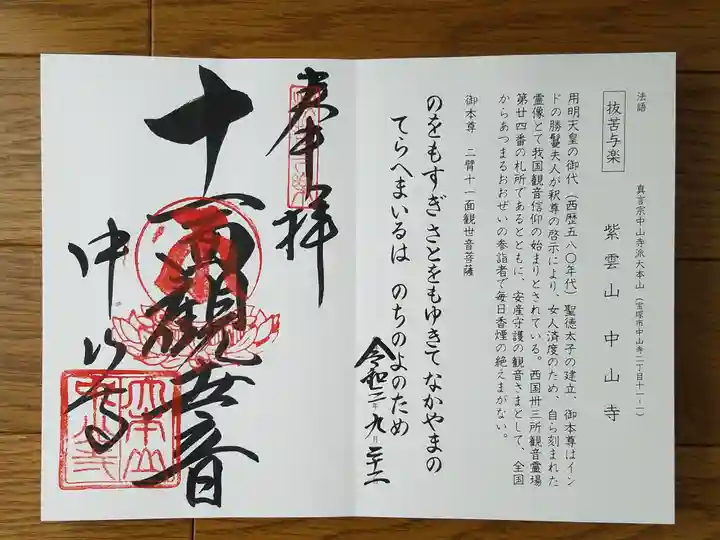 法語
抜苦与楽
真言宗中山寺派大本山（宝塚市中山寺二丁目十一ー一）
紫雲山 中山寺
用明天皇の御代（西歴五八〇年代）聖徳太子の建立、御本尊はイン
ドの勝鬘夫人が釈尊の啓示により、女人済度のため、自ら刻まれた
霊像とて我国観音信仰の始まりとされている。西国卅三所観音霊場
第廿四番の札所であるとともに、安産守護の観音さまとして、全国
からあつまるおおぜいの参詣者で毎日香煙の絶えまがない。
御本尊 二臂十一面観世音菩薩
のをもすぎ さとをもゆきて なかやまの
てらへまいるは のちのよのため
令和二年九月二十二
奉拝
十一面観世音
中山寺
大本山
中山寺